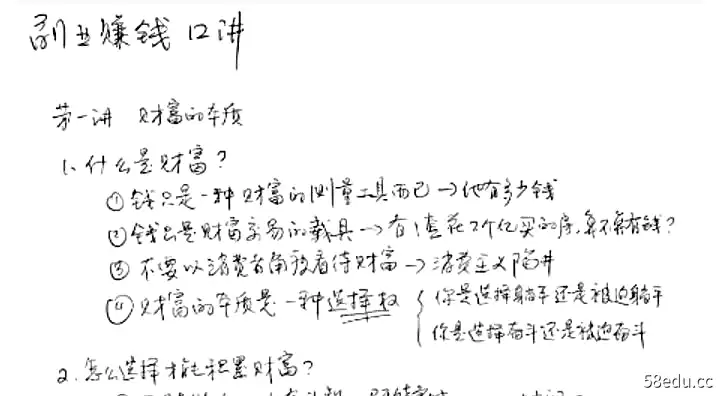 副业赚钱 12讲
第一讲 财富的本质
1、什么是财富？
①钱只是一种财富的测量工具而已→他有多少钱
②钱只是财富交易的载具→有1套花2个亿买的房，算不算有钱？
③不要以消费者角度看待财富→消费主义陷井
④财富的本质是一种选择权 { 你是选择躺平还是被迫躺平
你是选择奋斗还是被迫奋斗
2、怎么选择才能积累财富？
58edu.cc